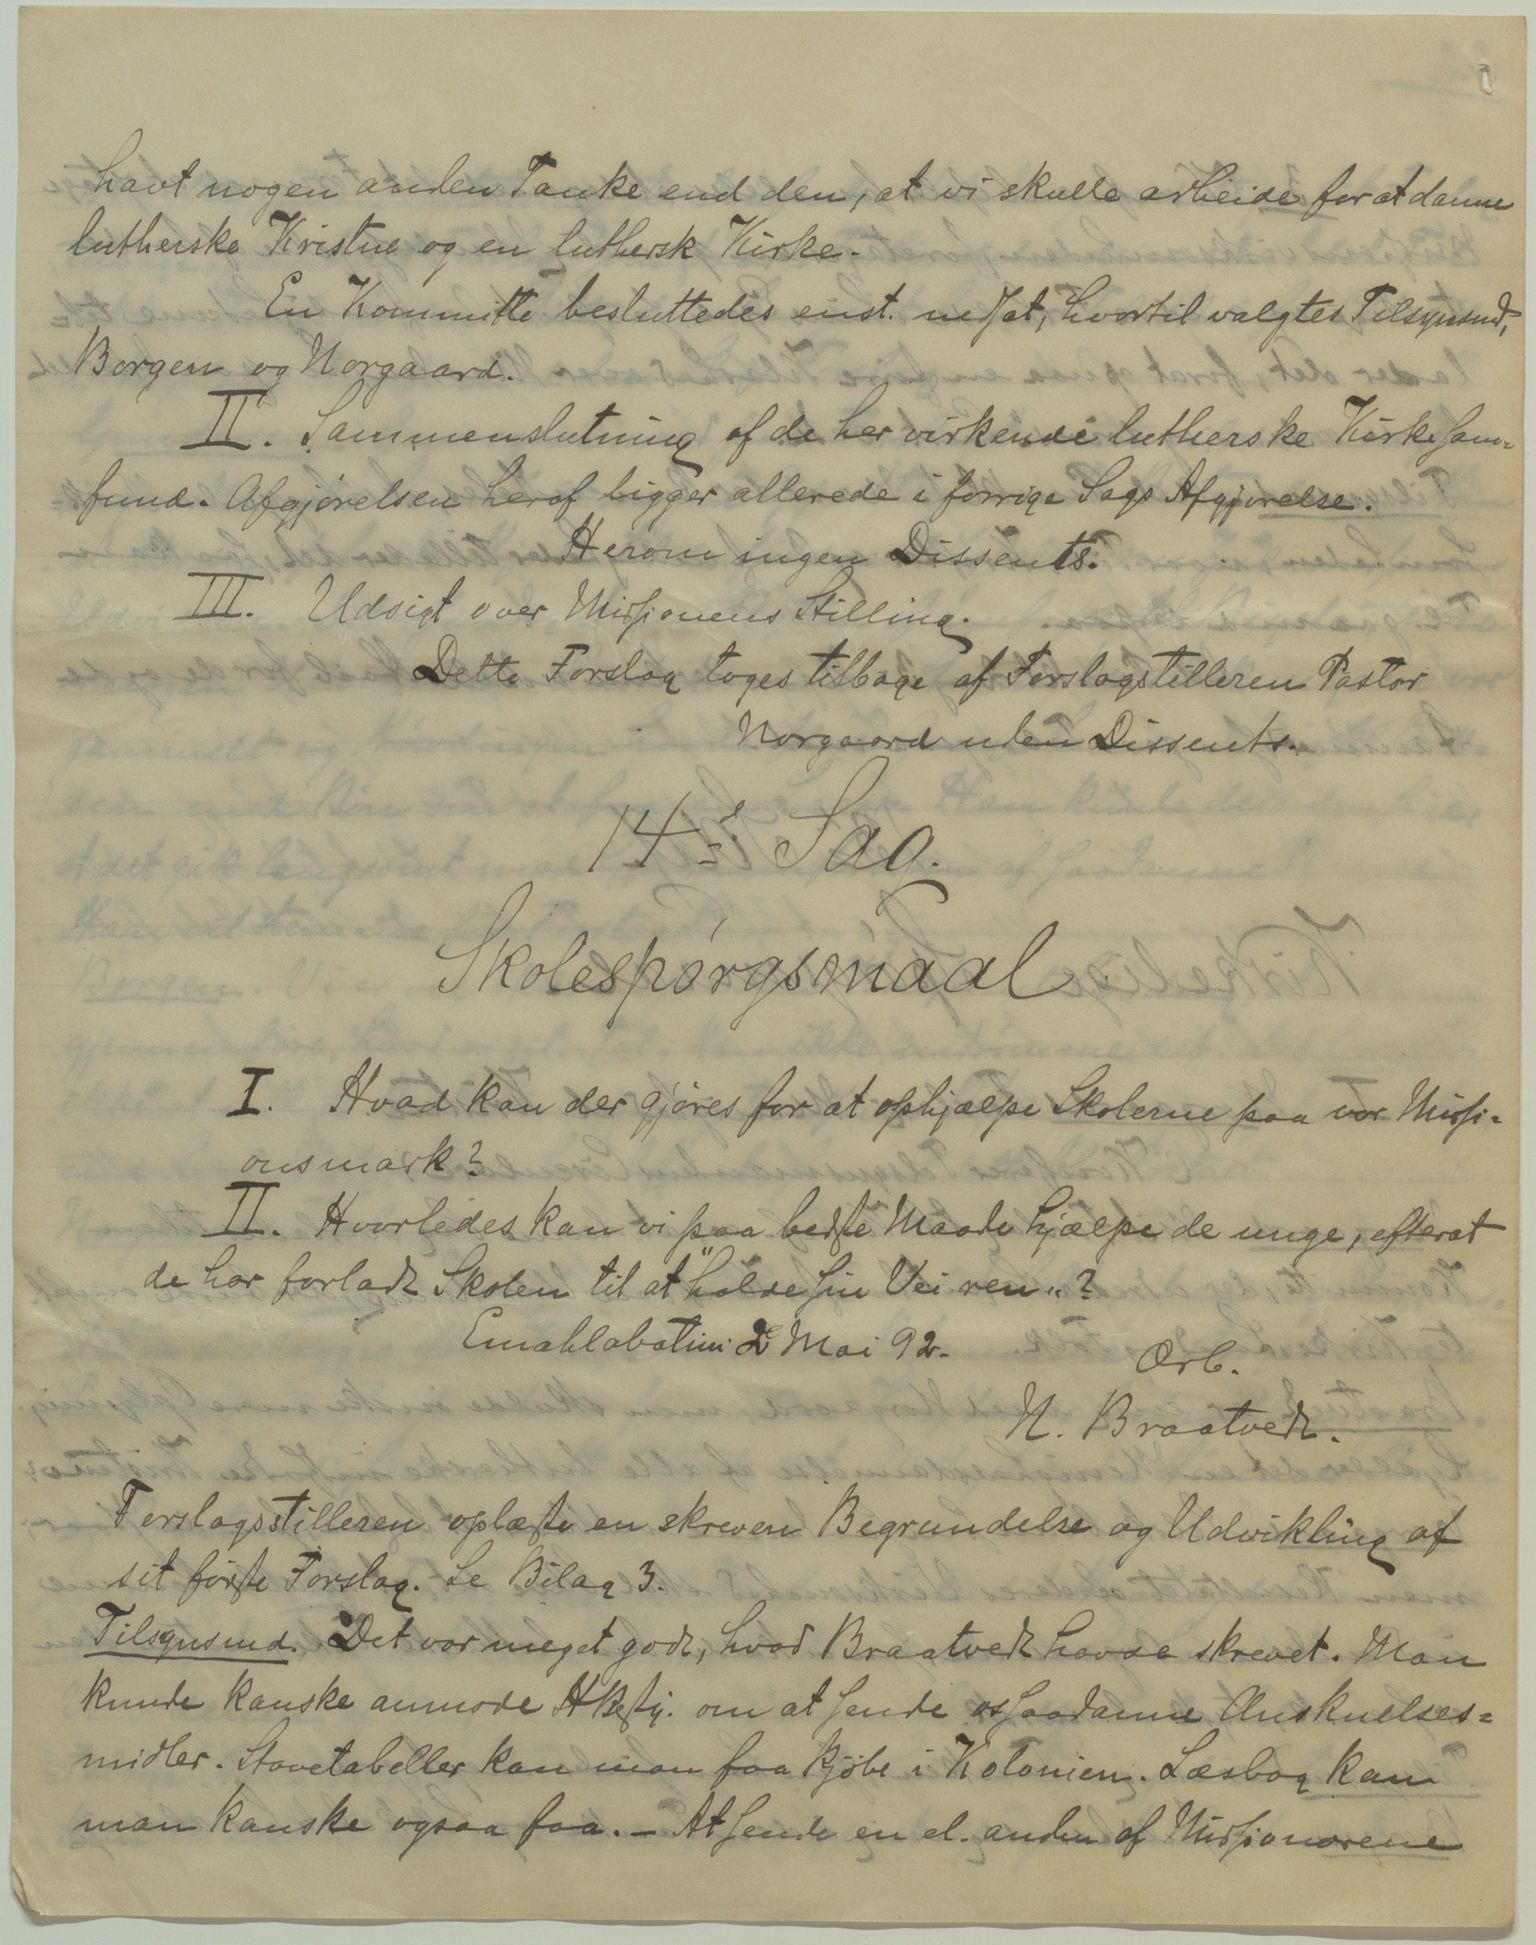 havt nogen anden Tanke end den, at vi skulle arbeide for at danne
lutherske Kristne og en luthersk Kirke.
En Kommitte besluttedes enst. nedsat, hvortil valgtes Tilsynsmd,
Borgen og Norgaard.
II. Sammenslutning af de her virkende lutherske Kirkesam=
fund. Afgjørelsen heraf ligger allerede i forrige Sags Afgjørelse.
Herom ingen Dissents.
III. Udsigt over Missionens Stilling.
Dette Forslag toges tilbage af Forslagstilleren Pastor
Norgaard uden Dissents.
14de Sag.
Skolespørgsmaal
I. Hvad kan der gjøres for at ophjælpe Skolerne paa vor Missi=
onsmark?
II. Hvorledes kan vi paa bedste Maade hjælpe de unge, efterat
de har forladt Skolen til at "holde sin Vei ren"?
Emahlabatini 2 Mai 92.
Ærb.
N. Braatvedt.
Forslagsstilleren oplæste en skreven Begrundelse og Udvikling af
sit første Forslag. Se Bilag 3.
Tilsynsmd. Det var meget godt, hvad Braatvedt havde skrevet. Man
kunde kanske anmode HBesty. om at sende os saadanne Anskuelses=
midler. Stavetabeller kan man faa kjøbe i Kolonien. Læsbog kan
man kanske ogsaa faa. – At sende en el. anden af Missionærerne